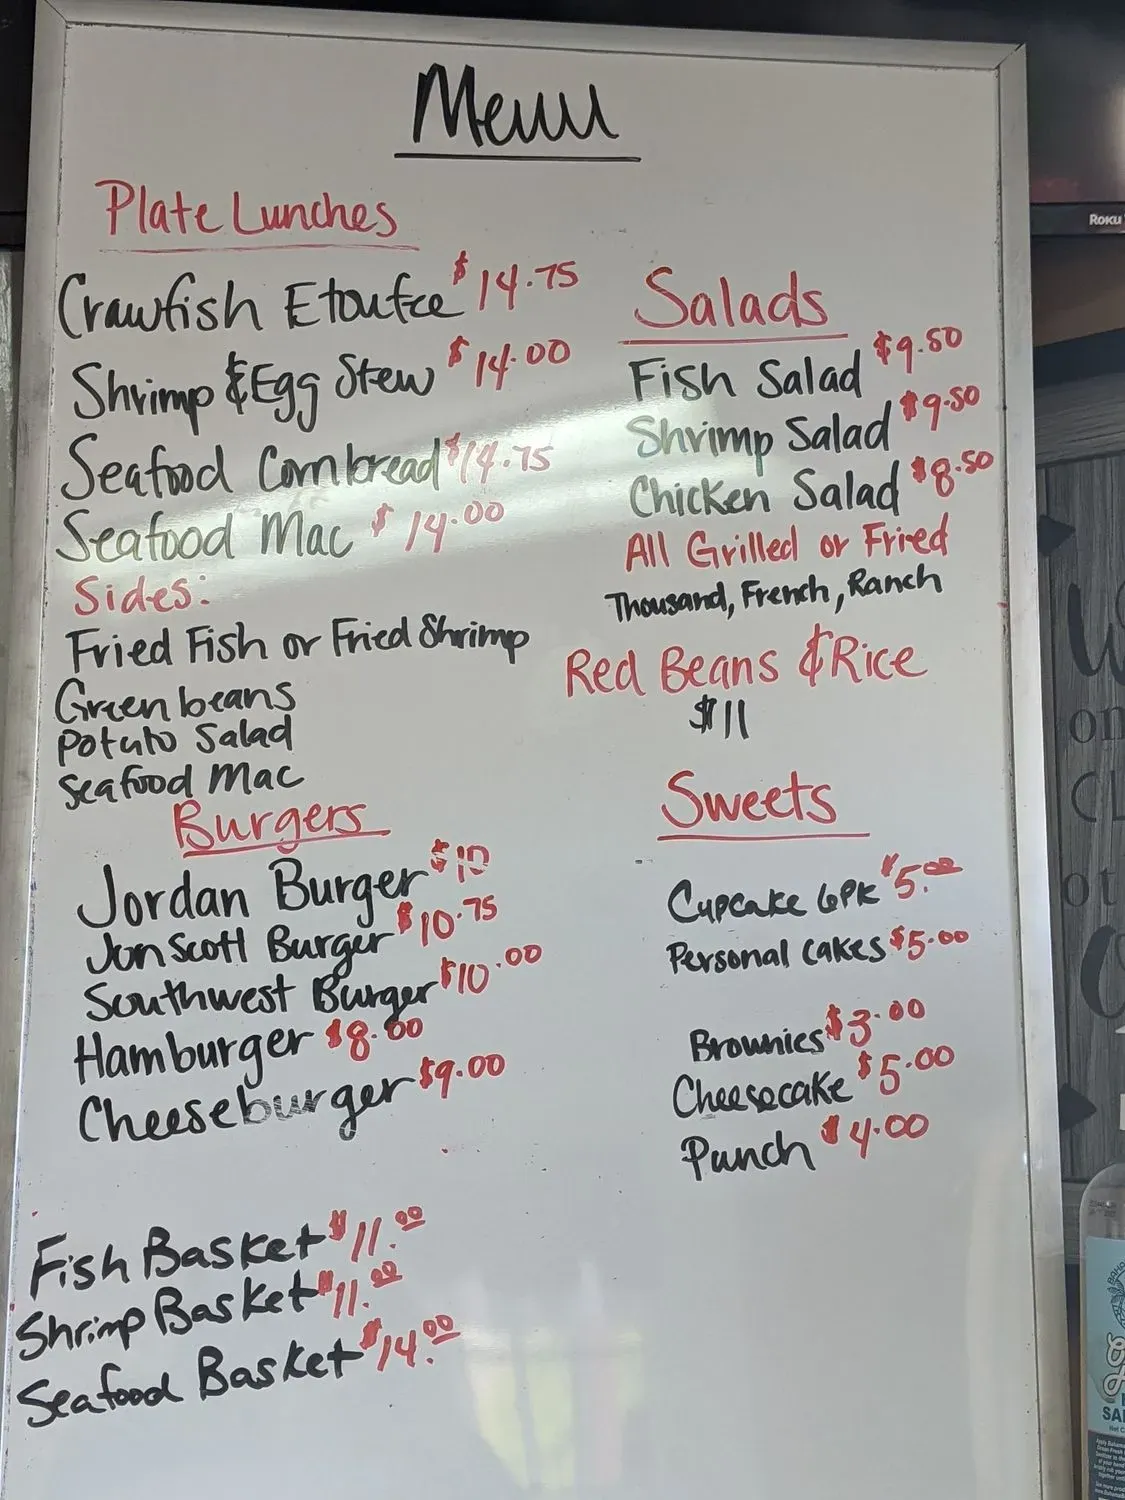 Menu
Plate Lunches
Crawfish Etoufee $14.75
Shrimp & Egg Stew $14.00
Seafood Cornbread $14.75
Seafood Mac $14.00
Sides:
Fried Fish or Fried Shrimp
Green beans
Potato Salad
Seafood Mac
Burgers
Jordan Burger $10
Jon Scott Burger $10.75
Southwest Burger $10.00
Hamburger $8.00
Cheeseburger $9.00
Fish Basket $11.00
Shrimp Basket $11.00
Seafood Basket $14.00
Salads
Fish Salad $9.50
Shrimp Salad $9.50
Chicken Salad $8.50
All Grilled or Fried
Thousand, French, Ranch
Red Beans & Rice
$11
Sweets
Cupcake 6PK $5.00
Personal Cakes $5.00
Brownies $3.00
Cheesecake $5.00
Punch $4.00
Roku